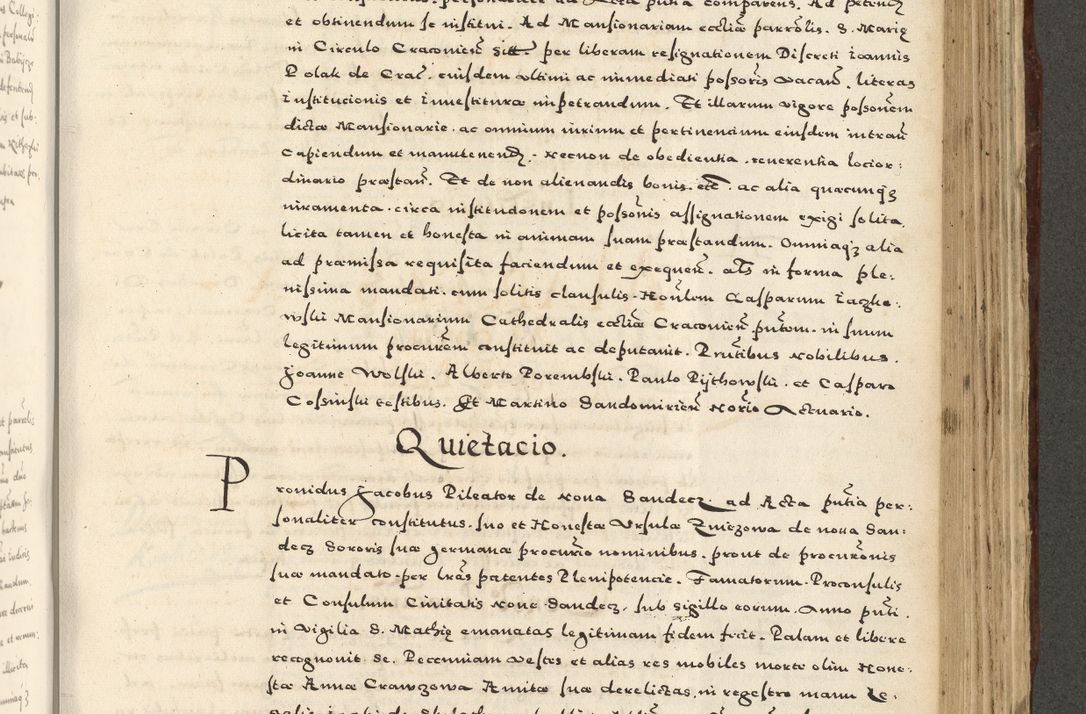 et obtinendum se institui. Ad Mansionariam eccliæ parrolis. S. Marię
in Circulo Cracovien̄ sitt̄. per liberam resignationem Discreti Ioannis
Polak de Crac̄. eiusdem vltimi ac immediati possoris vacan̄. literas
Institucionis et Inuestituræ impetrandum. Et illarum vigore possonem
dictæ Mansionarie. ac omnium iurium et pertinencium eiusdem intran̄
Capiendum et manutenend. Necnon de obedientia. reuerentia locior:
dinario præstan̄. Et de non alienandis bonis. etc̄. ac alia quæcunqȝ
iuramenta. circa institudonem et possonis assignationem exigi solita
licita tamen et honesta in animam suam præstandum. Omniaqȝ alia
ad præmissa requisita faciendum et exequen̄. als in forma ple:
nissima mandati. cum solitis clausulis. Honlem Casparum Iazke:
wski Mansionarium Cathedralis eccliæ Cracouien̄. pntem. in suum
legitimum procurem constituit ac deputauit. Pnntibus Nobilibus.
Joanne Wolski. Alberto Porembski. Paulo Pijthowski. et Casparo
Cossinski testibus. Et Martino Sandomirien̄ Norio Actuario.
Quietacio.
Prouidus Jacobus Pileator de Noua Sandecz. ad Acta pntia per:
sonaliter constitutus. suo et Honestæ Vrsulæ Zmiezowa de noua San:
decz Sororis suæ germanæ procurio nominibus. prout de procuronis
suæ mandato. per lras patentes Plenipotencie. Famatorum. Proconsulis
et Consulum Ciuitatis Noue Sandecz. sub sigillo eorum. Anno pnti.
in Vigilia S. Mathię emanatas legitimam fidem fecit. Palam et libere
recognouit se. Pecenniam vestes et alias res mobiles morte olim Hone:
stæ Annæ Crawczowa Amitæ suæ derelictas, in regestro manu Le: